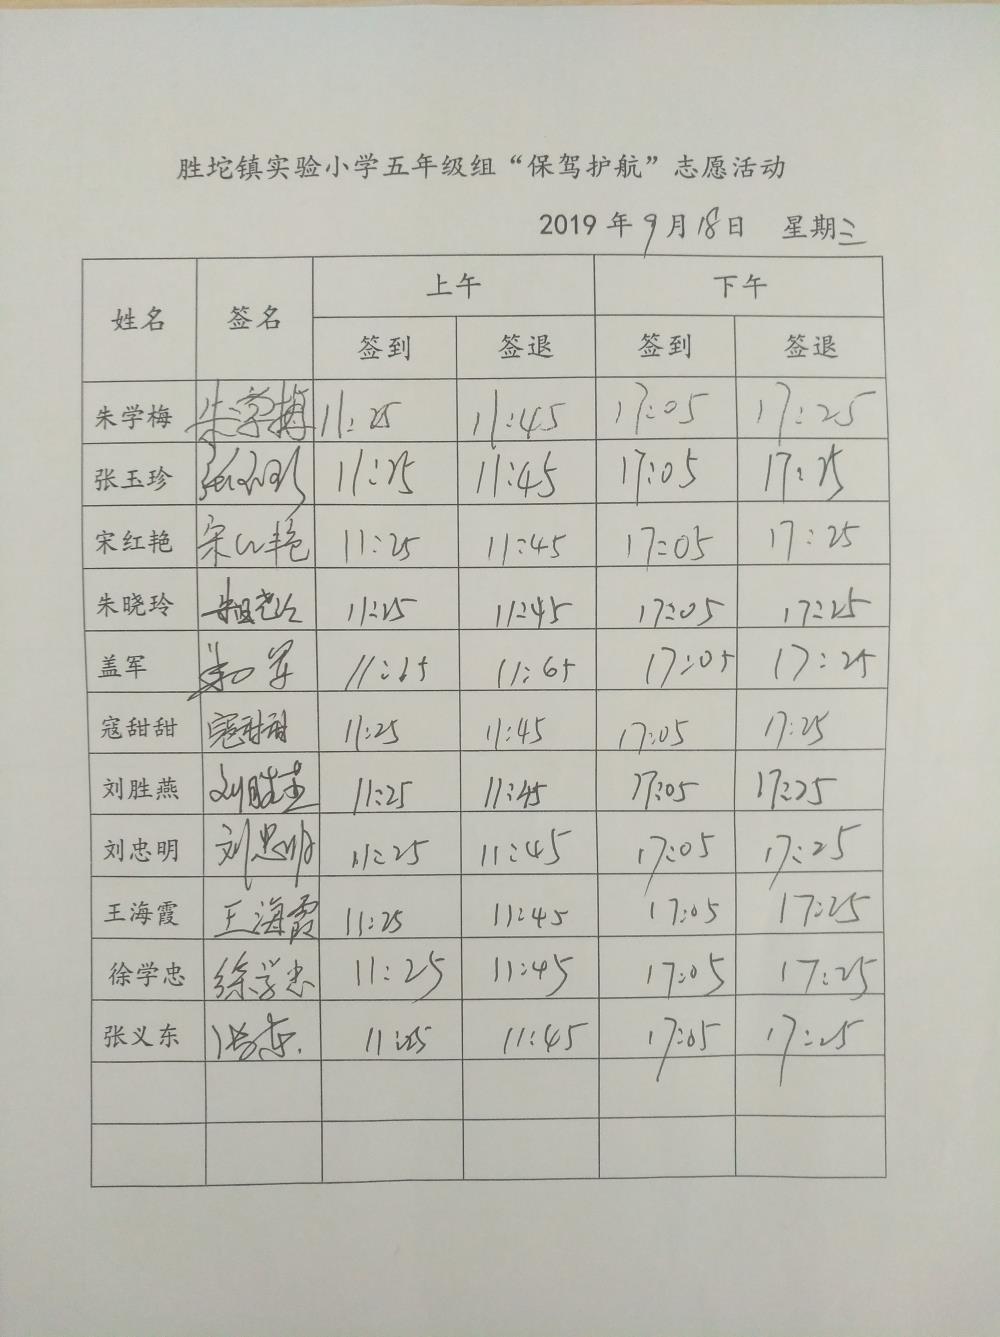 胜坨镇实验小学五年级组“保驾护航”志愿活动
2019年9月18日 星期三
姓名 签名 上午 下午
签到 签退 签到 签退
朱学梅 朱学梅 11:25 11:45 17:05 17:25
张玉珍 11:25 11:45 17:05 17:25
宋红艳 宋红艳 11:25 11:45 17:05 17:25
朱晓玲 朱晓玲 11:25 11:45 17:05 17:25
盖军 11:25 11:45 17:05 17:25
寇甜甜 寇甜甜 11:25 11:45 17:05 17:25
刘胜燕 刘胜燕 11:25 11:45 17:05 17:25
刘忠明 刘忠明 11:25 11:45 17:05 17:25
王海霞 王海霞 11:25 11:45 17:05 17:25
徐学忠 徐学忠 11:25 11:45 17:05 17:25
张义东 11:25 11:45 17:05 17:25